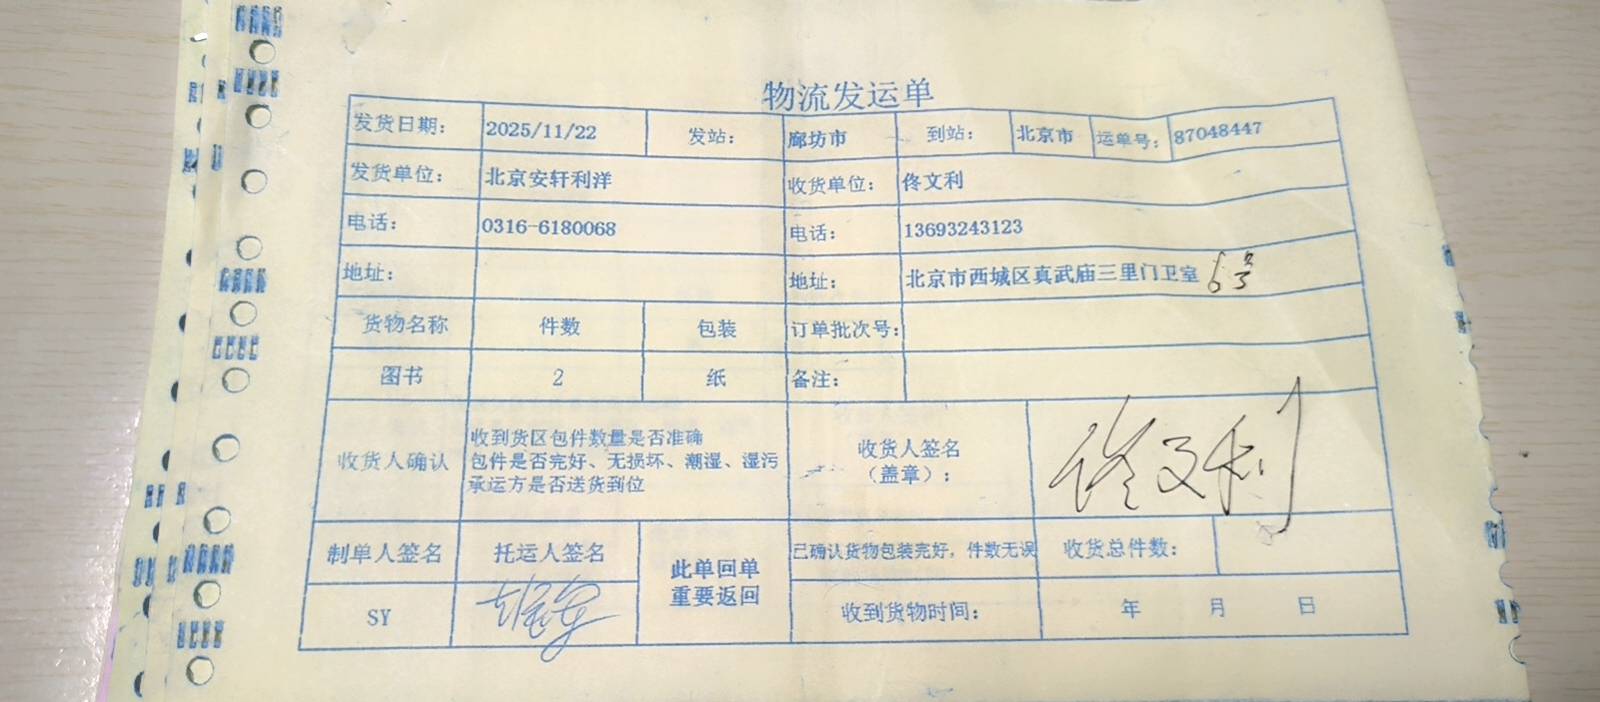 物流发运单
发货日期： 2025/11/22 发站： 廊坊市 到站： 北京市 运单号： 87048447
发货单位： 北京安轩利洋 收货单位： 佟文利
电话： 0316-6180068 电话： 13693243123
地址： 地址： 北京市西城区真武庙三里门卫室 6号
货物名称 件数 包装 订单批次号：
图书 2 纸 备注：
收货人确认
收到货区包件数量是否准确
包件是否完好、无损坏、潮湿、湿污
承运方是否送货到位
收货人签名
（盖章）：
佟文利
制单人签名 托运人签名
此单回单
重要返回
已确认货物包装完好，件数无误 收货总件数：
SY
收到货物时间： 年 月 日